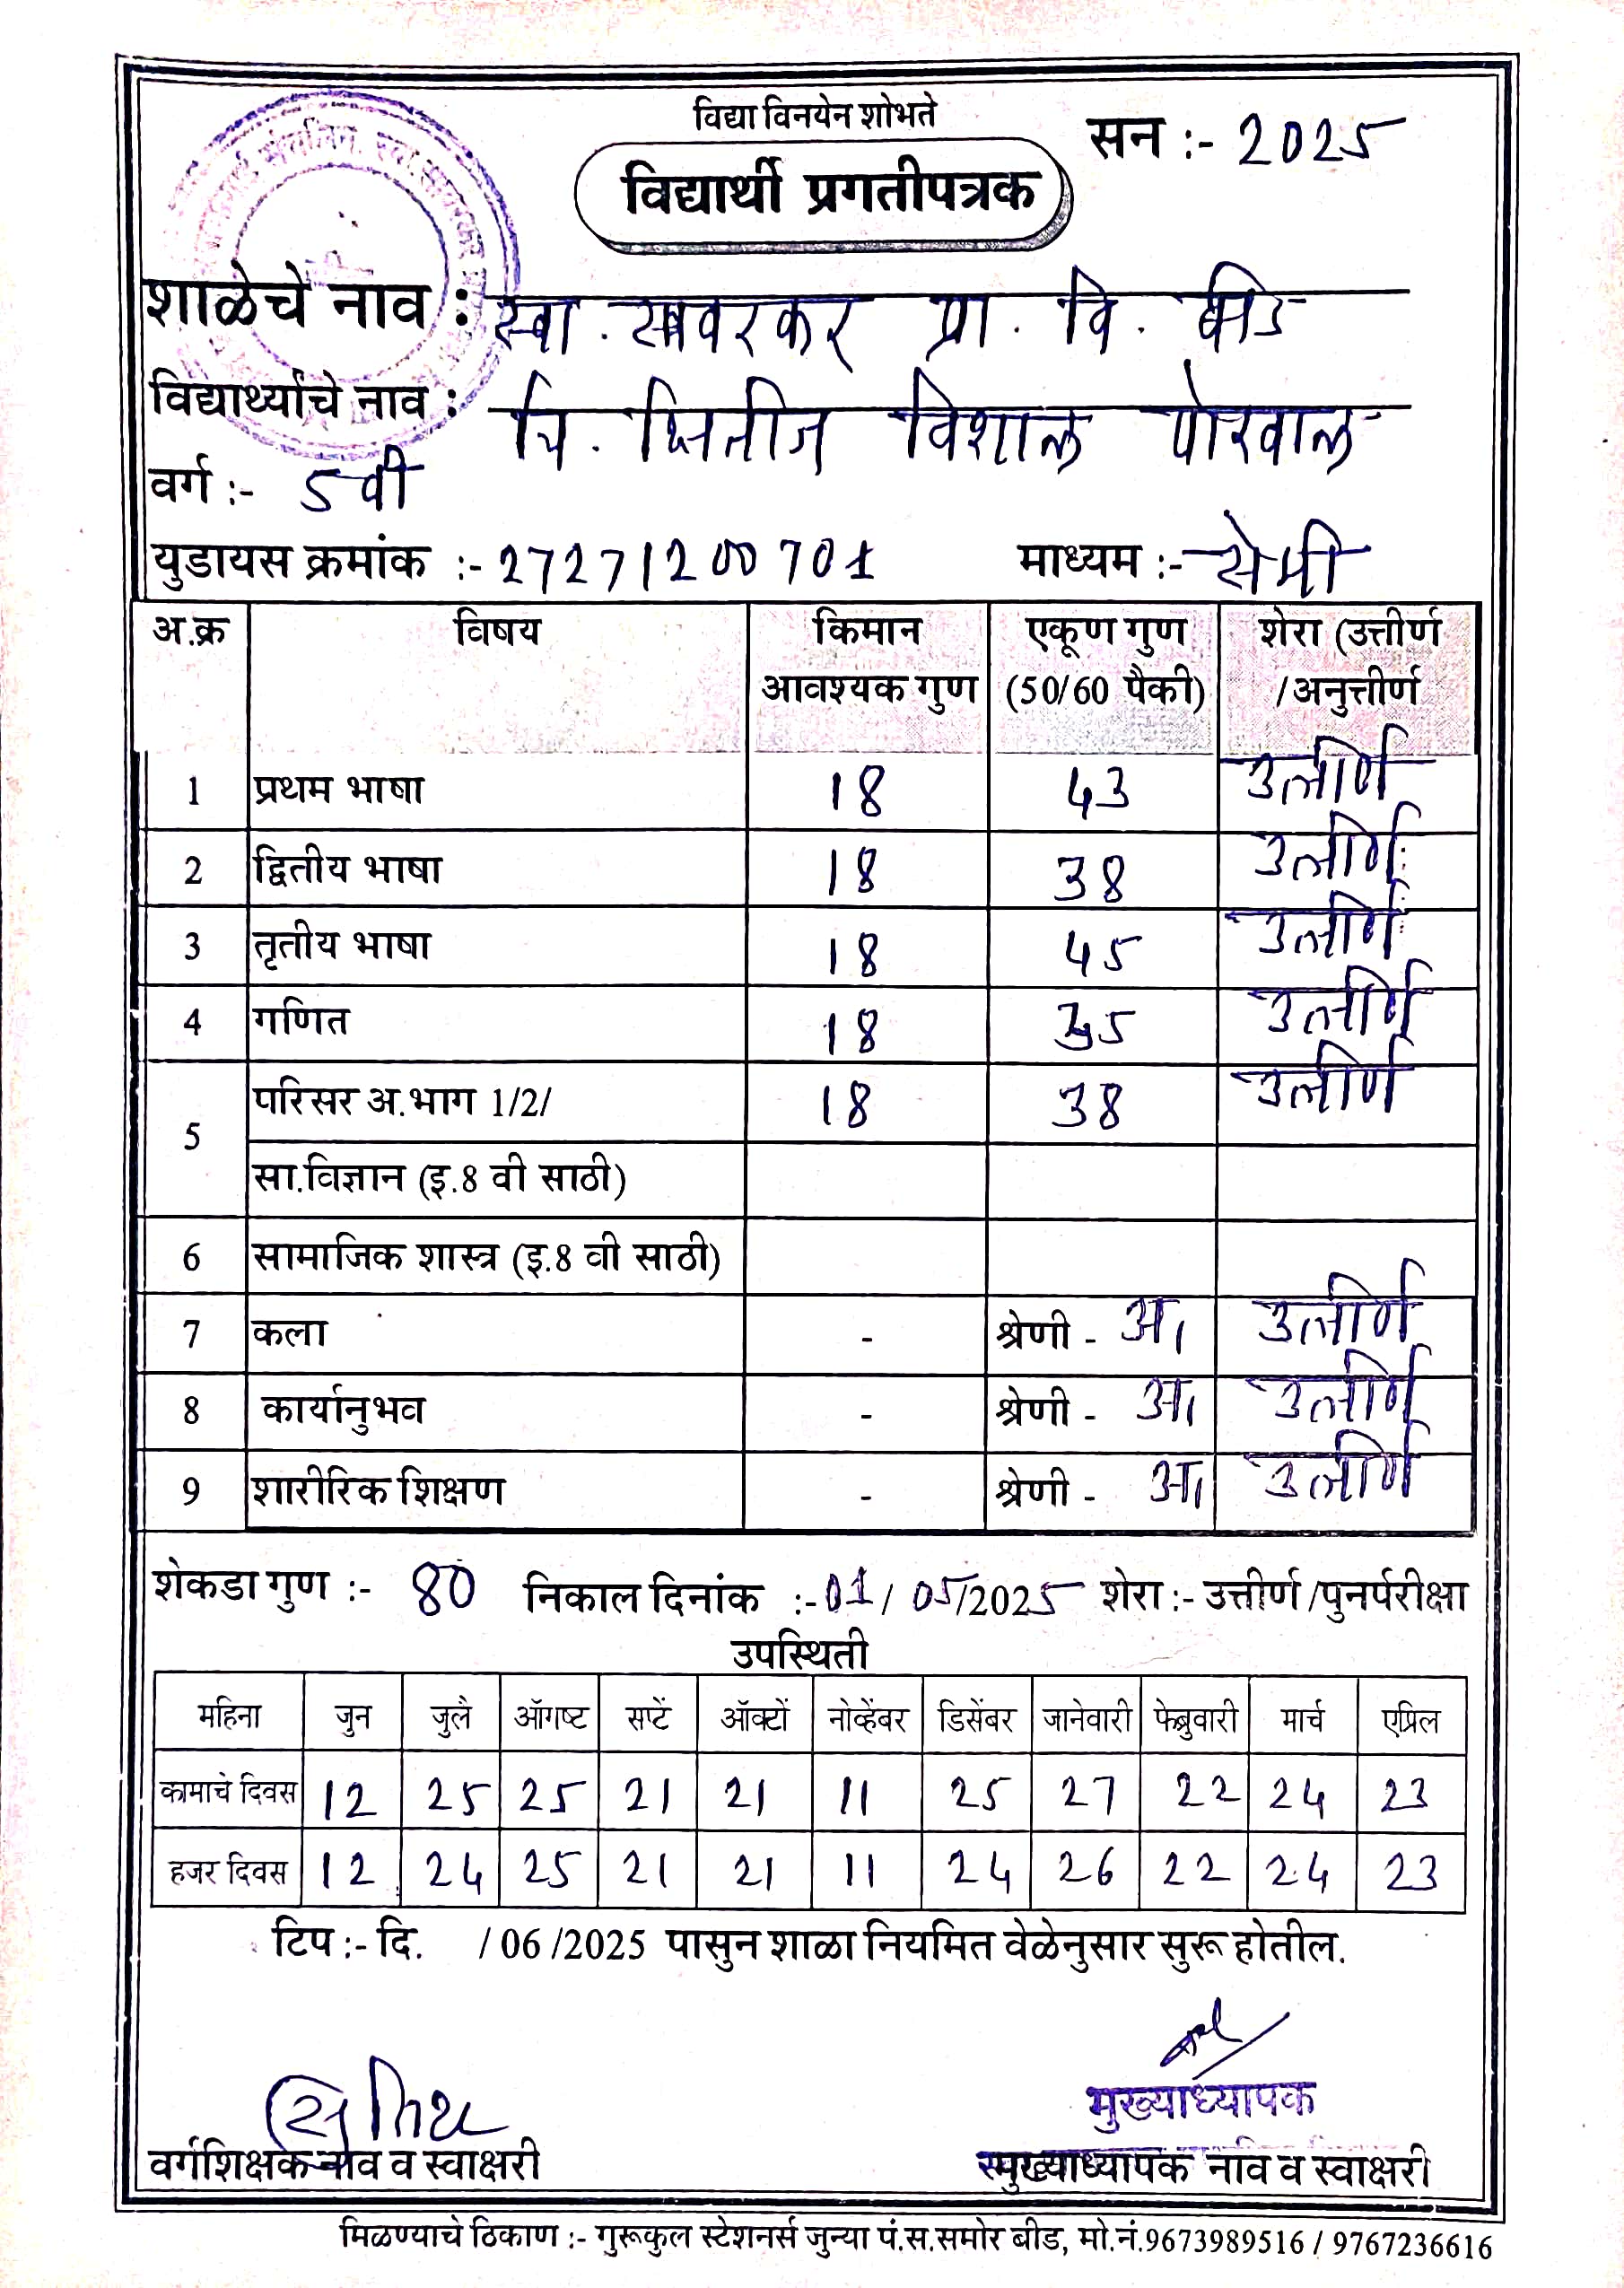 विद्या विनयेन शोभते
सन :- 2025
विद्यार्थी प्रगतीपत्रक
शाळेचे नाव : स्वा. सावरकर प्रा. वि. बीड
विद्यार्थ्यांचे नाव : चि. क्षितीज विशाल पोरवाल
वर्ग :- 5वी
युडायस क्रमांक :- 27271200701 माध्यम :- सेमी
अ.क्र विषय किमान आवश्यक गुण एकूण गुण (50/60 पैकी) शेरा (उत्तीर्ण /अनुत्तीर्ण
1 प्रथम भाषा 18 43 उत्तीर्ण
2 द्वितीय भाषा 18 38 उत्तीर्ण
3 तृतीय भाषा 18 45 उत्तीर्ण
4 गणित 18 35 उत्तीर्ण
5 परिसर अ.भाग 1/2/ 18 38 उत्तीर्ण
सा.विज्ञान (इ.8 वी साठी)
6 सामाजिक शास्त्र (इ.8 वी साठी)
7 कला - श्रेणी - अ1 उत्तीर्ण
8 कार्यानुभव - श्रेणी - अ1 उत्तीर्ण
9 शारीरिक शिक्षण - श्रेणी - अ1 उत्तीर्ण
शेकडा गुण :- 80 निकाल दिनांक :- 01/05/2025 शेरा :- उत्तीर्ण /पुनर्परीक्षा
उपस्थिती
महिना जुन जुलै ऑगष्ट सप्टें ऑक्टों नोव्हेंबर डिसेंबर जानेवारी फेब्रुवारी मार्च एप्रिल
कामाचे दिवस 12 25 25 21 21 11 25 27 22 24 23
हजर दिवस 12 24 25 21 21 11 24 26 22 24 23
टिप :- दि. /06 /2025 पासुन शाळा नियमित वेळेनुसार सुरू होतील.
मुख्याध्यापक
वर्गशिक्षक नाव व स्वाक्षरी मुख्याध्यापक नाव व स्वाक्षरी
मिळण्याचे ठिकाण :- गुरूकुल स्टेशनर्स जुन्या पं.स.समोर बीड, मो.नं.9673989516 / 9767236616